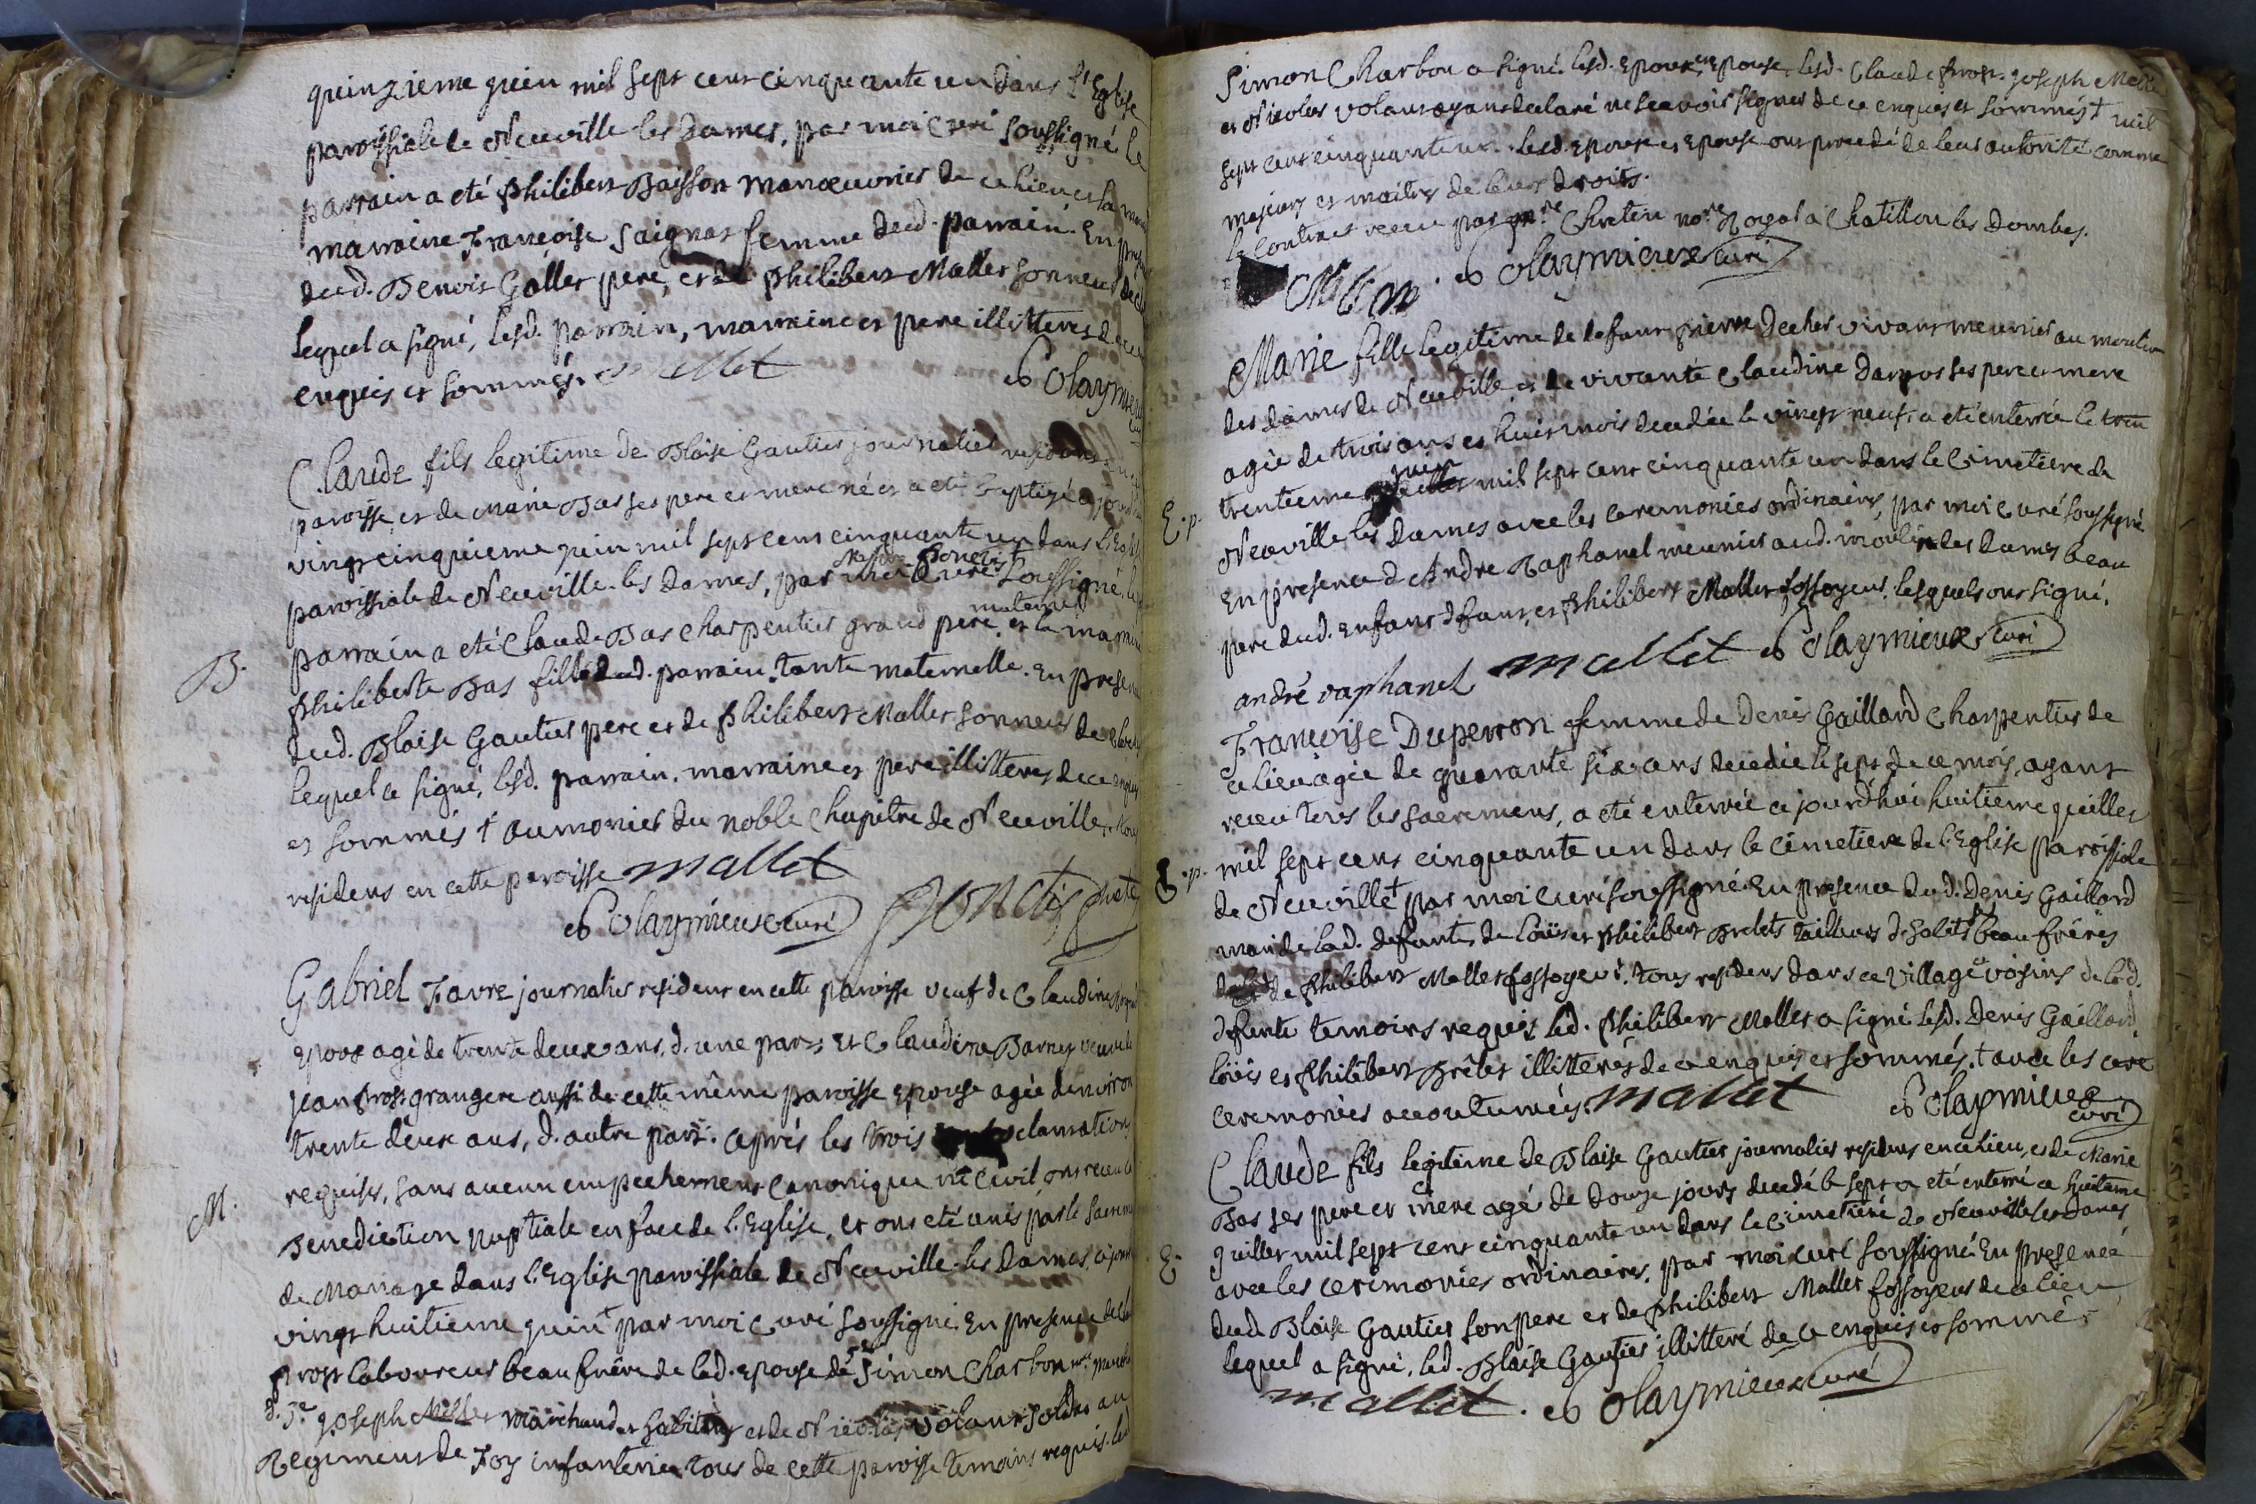 quinzieme juin mil sept cent cinquante un dans l'Eglise
paroissiale de Neuville les dames, par moi curé soussigné le
parrain a eté philibert Buisson manoeuvrier de ce lieu et la
marraine Françoise Saignar femme dud. parrain. En
dud. Benoit Gallet pere, et de philibert Mallet sonneur de
lequel a signé, lesd. parrain, marraine et pere illitteres de ce
enquis et sommés. mallet Claymieux
Claude fils legitime de Blaise Gautier journalier residant en
paroisse, et de Marie Bas ses pere et mere né et a eté baptizé
vingt cinquieme juin mil sept cent cinquante un dans l'Eglise
paroissiale de Neuville les dames, par soussigné, le
maternel
parrain a eté Claude Bas charpentier grand pere, et la marraine
B.
philiberte Bas fille dud. parrain tante maternelle. En presence
dud. Blaise Gautier pere et de philibert Mallet sonneur de
lequel a signé, lesd. parrain, marraine et pere illitteres de ce enquis
et sommés † aumonier du noble Chapitre de Neuville,
residens en cette paroisse mallet
Claymieux curé
Gabriel Favre journalier resident en cette paroisse veuf de Claudine
epoux agé de trente deux ans, d'une part, Et Claudine Barney veuve de
Jean prost grangere aussi de cette même paroisse Epouse agée denviron
trente deux ans, d'autre part. après les trois clamations
requises, sans aucun empechement canonique ni Civil ont receu la
M.
Benediction nuptiale en face de l'Eglise, et ont eté unis par le
de Mariage dans l'Eglise paroissiale de Neuville les Dames,
vingt huitieme juin † par moi curé soussigné En presence de
prost laboureur beau frère de lad. epouse de Sr Simon Charbon
Joseph marchand et habitant, et de Nicolas Volant soldat au
Regiment de Foy infanterie tous de cette paroisse temoins requis. led
Simon Charbon a signé. lesd. Epoux, epouse, lesd. Claude prost, joseph
et Nicolas volant ayans declaré ne scavoir signer de ce enquis et sommés † mil
sept cent cinquante un. lesd. Epoux et Epouse ont procedé de leur autorité comme
majeurs et maitres de leurs droits.
le Contract receu par Chretien nore Royal à Chatillon les dombes.
Claymieux curé
Marie fille legitime de defunt pierre decher vivant meunier au moulin
des dames de Neuville, et de vivante Claudine ses pere et mere
agée de trois ans et huit mois decedée le vingt neuf, a eté enterrée le
juin
trentieme mil sept cent cinquante un dans le Cimetiere de
E. p.
Neuville les Dames avec les ceremonies ordinaires, par moi curé soussigné
En presence d'Andre Raphanel meunier aud. moulin des dames beau
pere dud. enfant defunt, et philibert Mallet fossoyeur, lesquels ont signé.
andré raphanel mallet Claymieux curé
Françoise Duperron femme de Denis Gaillard charpentier de
ce lieu agée de quarante six ans decedée le sept de ce mois, ayant
receu tous les sacremens, a eté enterrée ce jourd'hui huitieme juillet
E. p.
mil sept cent cinquante un dans le cimetiere de l'Eglise paroissiale
de Neuville † par moi curé soussigné. En presence dud. Denis Gaillard
mari de lad. defunte, de loüis et philibert Brelets tailleurs d'habits beau frères
de philibert Mallet fossoyeur. tous residens dans ce village et voisins de lad.
defunte temoins requis, led. philibert Mallet a signé lesd. Denis Gaillard,
loüis et philibert Brelets illitterés de ce enquis et sommés. † avec les cere
ceremonies accoutumées. mallet Claymieux
curé
Claude fils legitime de Blaise Gautier journalier resident en ce lieu, et de Marie
Bas ses pere et mere agé de douze jours decedé le sept a eté enterré ce huitieme
E.
juillet mil sept cent cinquante un dans le Cimetiere de Neuville les dames
avec les ceremonies ordinaires, par moi curé soussigné. En presence
dud. Blaise Gautier son pere et de philibert Mallet fossoyeur de ce lieu
lequel a signé, led. Blaise Gautier illitteré de ce enquis et sommé
mallet. Claymieux curé